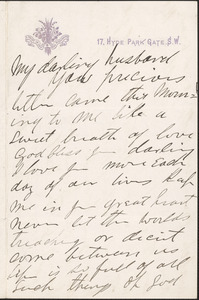 17, HYDE PARK GATE, S.W.
My darling husband
Your precious
letter came this Morn
ing to Me like a
Sweet breath of love
God bless you darling
I love you more Each
day of our lives Keep
me in your great heart
Never let the worlds
treachery or deceit
come between us
life is so full of all
Such things, Oh God